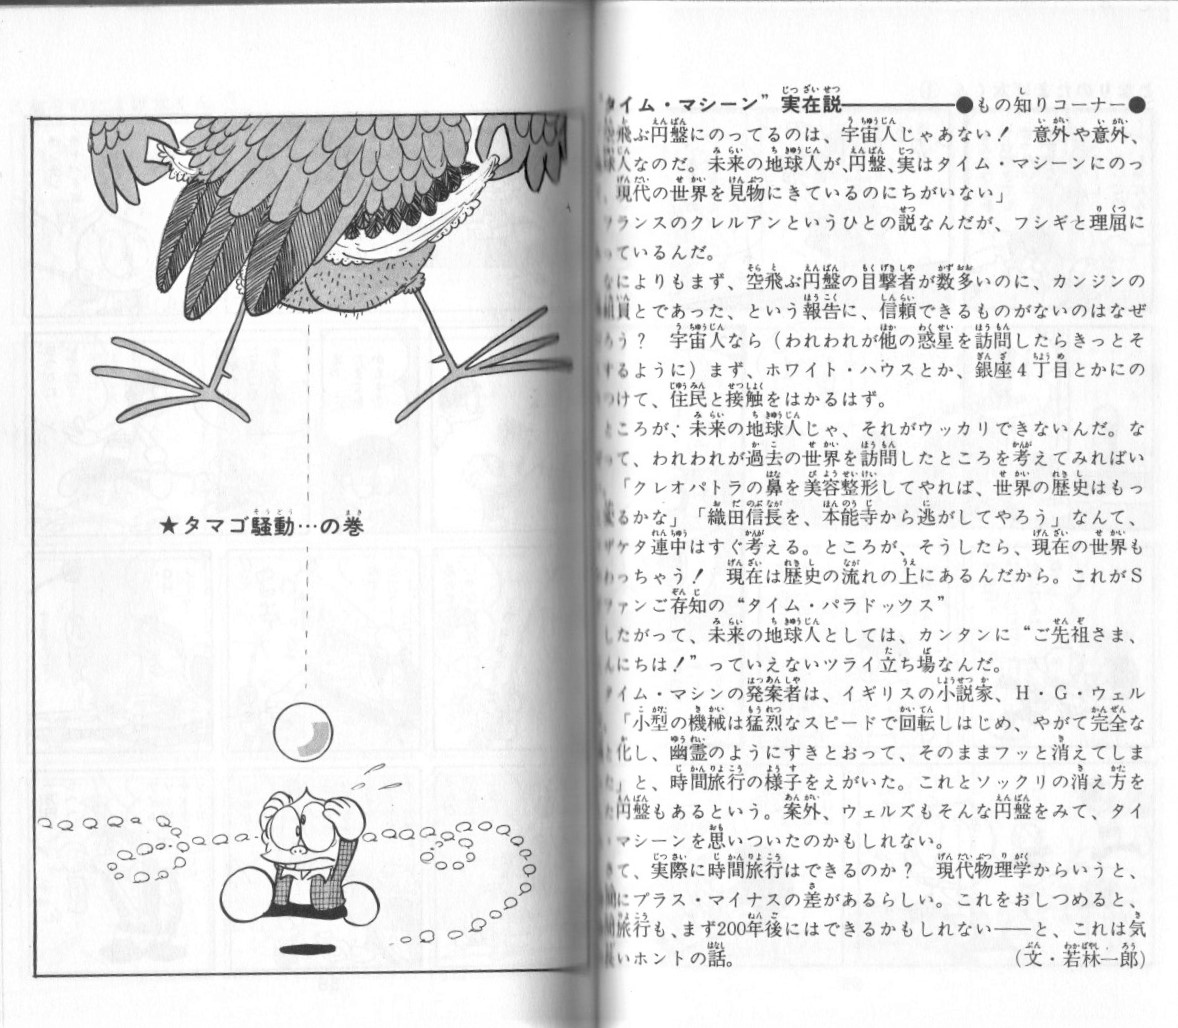 ★タマゴ騒動…の巻
タイム・マシーン”実在説――●もの知りコーナー●
飛ぶ円盤にのってるのは、宇宙人じゃあない！　意外や意外、
球人なのだ。未来の地球人が、円盤、実はタイム・マシーンにのっ
、現代の世界を見物にきているのにちがいない」
フランスのクレルアンというひとの説なんだが、フシギと理屈に
っているんだ。
なによりもまず、空飛ぶ円盤の目撃者が数多いのに、カンジンの
組員とであった、という報告に、信頼できるものがないのはなぜ
ろう？　宇宙人なら（われわれが他の惑星を訪問したらきっとそ
するように）まず、ホワイト・ハウスとか、銀座４丁目とかにの
つけて、住民と接触をはかるはず。
ところが、未来の地球人じゃ、それがウッカリできないんだ。な
って、われわれが過去の世界を訪問したところを考えてみればい
「クレオパトラの鼻を美容整形してやれば、世界の歴史はもっ
変るかな」「織田信長を、本能寺から逃がしてやろう」なんて、
ザケタ連中はすぐ考える。ところが、そうしたら、現在の世界も
わっちゃう！　現在は歴史の流れの上にあるんだから。これがＳ
ファンご存知の“タイム・パラドックス”
したがって、未来の地球人としては、カンタンに“ご先祖さま、
んにちは！”っていえないツライ立ち場なんだ。
タイム・マシンの発案者は、イギリスの小説家、Ｈ・Ｇ・ウェル
「小型の機械は猛烈なスピードで回転しはじめ、やがて完全な
と化し、幽霊のようにすきとおって、そのままフッと消えてしま
た」と、時間旅行の様子をえがいた。これとソックリの消え方を
た円盤もあるという。案外、ウェルズもそんな円盤をみて、タイ
・マシーンを思いついたのかもしれない。
さて、実際に時間旅行はできるのか？　現代物理学からいうと、
間にプラス・マイナスの差があるらしい。これをおしつめると、
間旅行も、まず200年後にはできるかもしれない――と、これは気
長いホントの話。　（文・若林一郎）